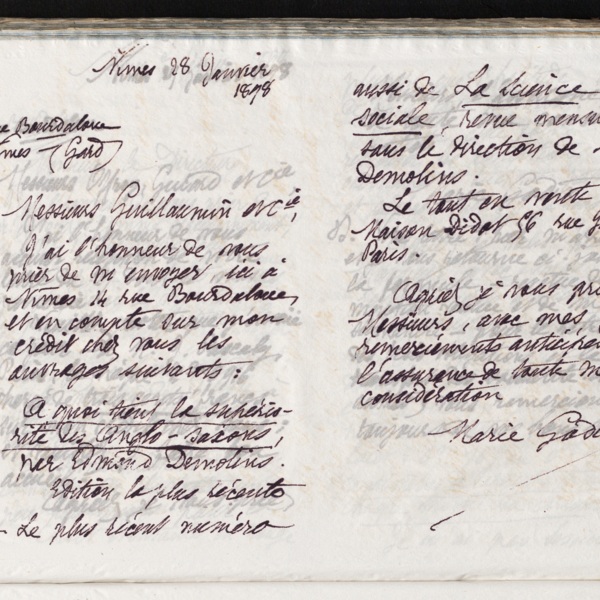 Nîmes 28 Janvier
1898
e Bourdaloue
mes - (Gard)
Messieurs Guillaumin et Cie,
J'ai l'honneur de vous
prier de m'envoyer, ici à
Nîmes 14 rue Bourdaloue,
et en compte sur mon
crédit chez vous les
ouvrages suivants :
A quoi tient la supério-
rité des Anglo-Saxons,
par Edmond Demolins.
Edition la plus récente
- Le plus récent numéro
aussi de La Science
sociale, revue mensu
sous la direction de
Demolins.
Le tout en vente
Maison Didot 56 rue
Paris.
Agréez je vous pri
Messieurs, avec mes
remerciements anticipés
l'assurance de toute m
considération
Marie God